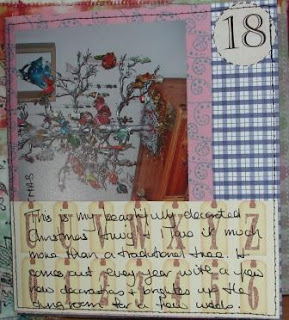 18
This is my beautifully decorated
Christmas twig. I love it much
more than a traditional tree. It
comes out every year with a few
new decorations & brightens up the
living room for a few weeks.